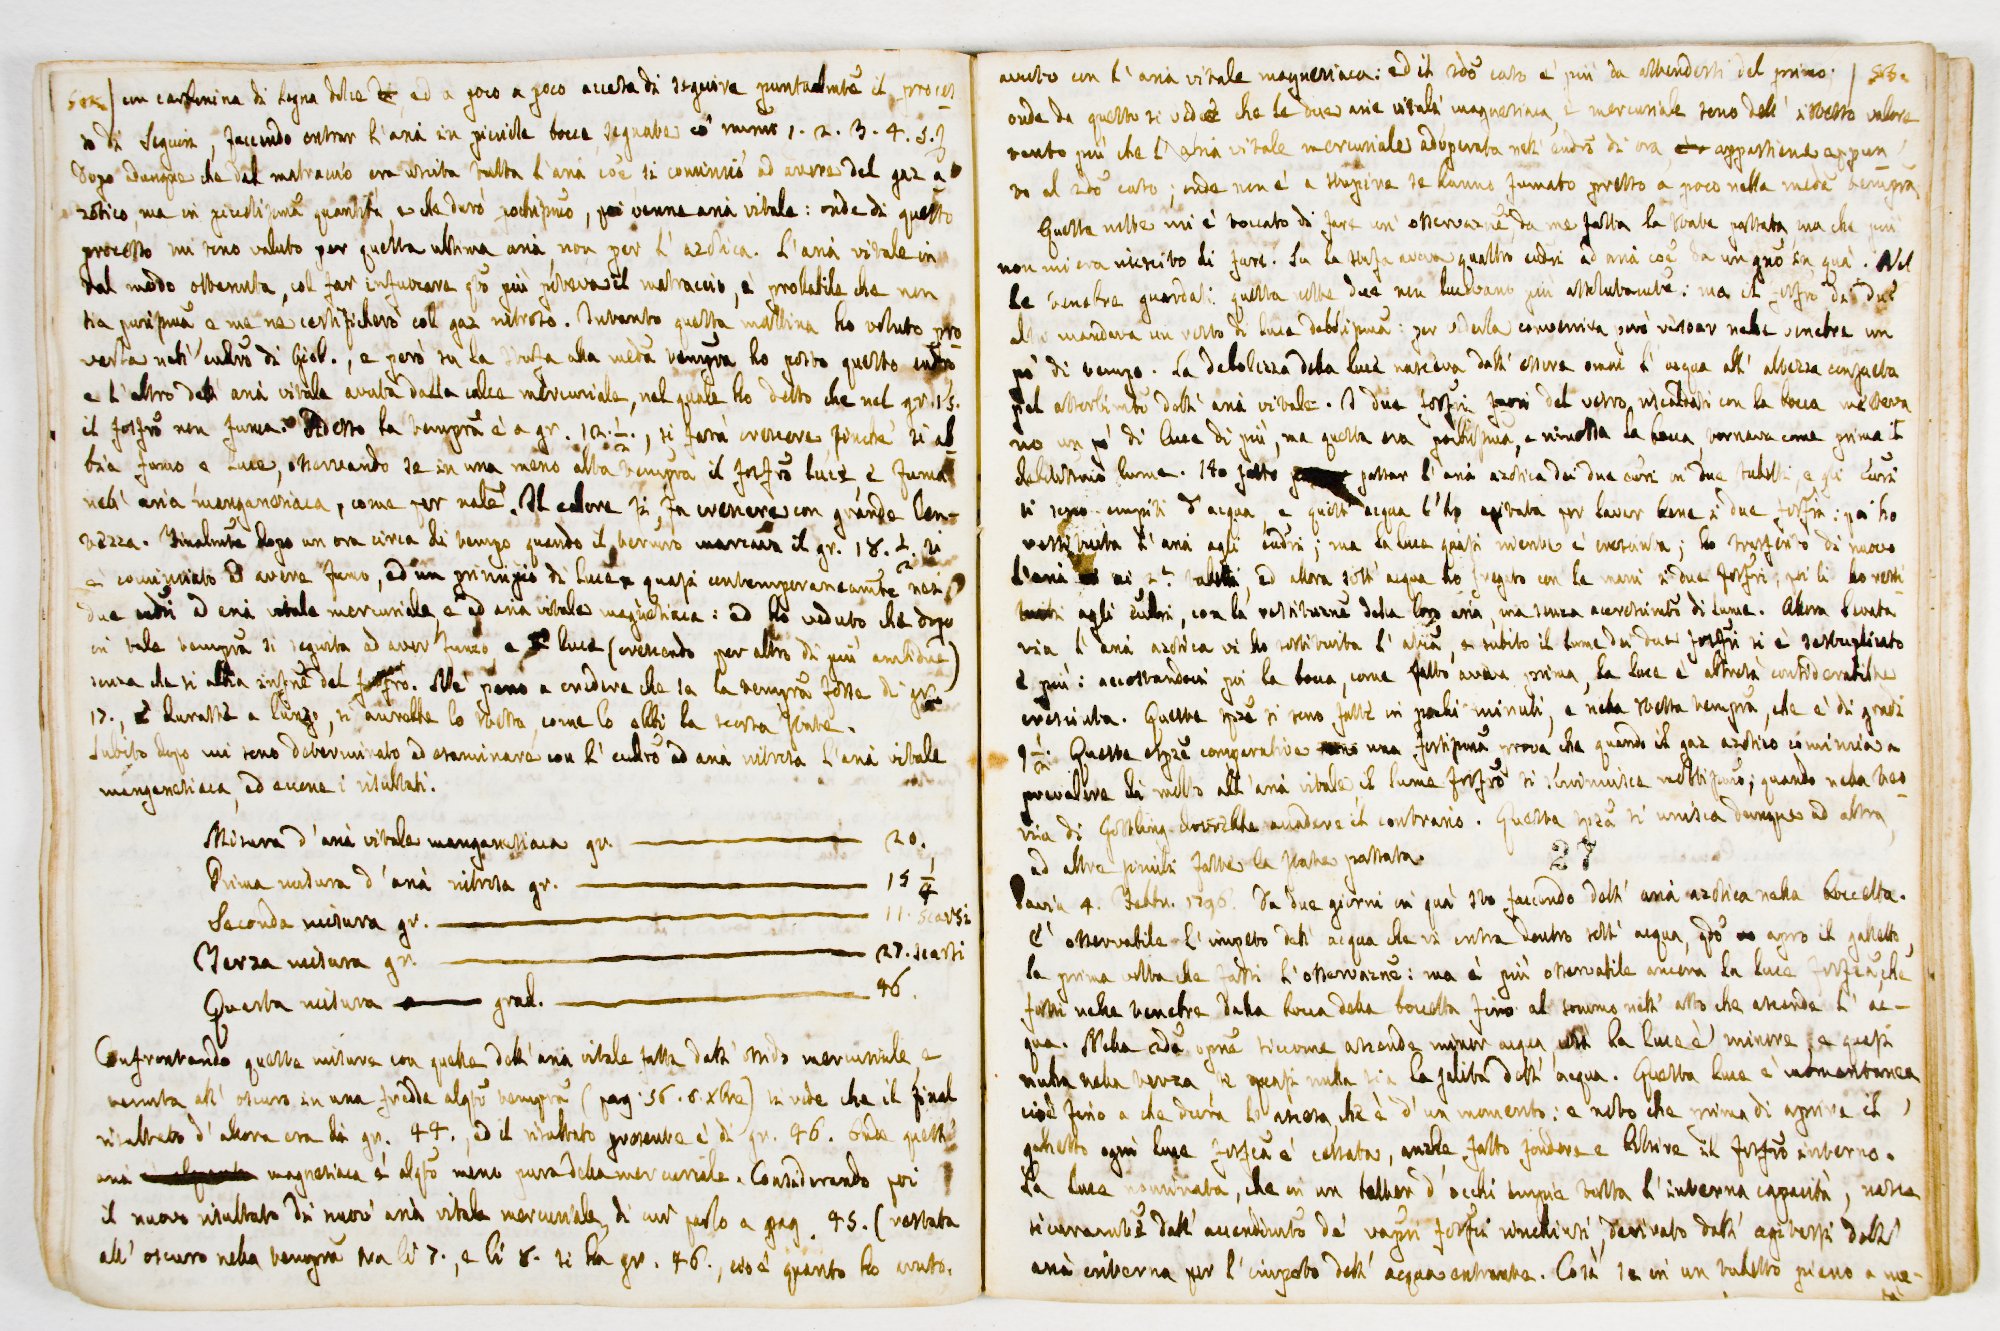 con carbonina di legna dolce ed a poco a poco accesa di seguire puntualmte il proces
so di Seguin, facendo entrar l'aria in piccole bocce, segnate co' numri 1. 2. 3. 4. 5.
Dopo adunque che dal matraccio era uscita tutta l'aria cioè si cominciò ad avere del gaz a
zotico, ma in piccolissima quantità, e che durò pochissimo, poi venne aria vitale: onde di questo
processo mi sono valuto per questa ultima aria, non per l'azotica. L'aria vitale in
tal modo ottenuta, col far infuocare qto più poteva il matraccio, è probabile che non
sia purissima e me ne certificherò col gaz nitroso. Intanto questa mattina ho voluto pro
varla nell'eudro di Giob., e però su la stufa alla meda tempra ho posto questo eudro
e l'altro dell'aria vitale avuta dalla calce mercuriale, nel quale ho detto che nel gr. 15.
il fosfro non fuma. Adesso la tempra è a gr. 12. 1/2., si farà crescere finchè si ab
bia fumo e luce, osservando se in una meno alta tempra il fosfro luce, e fuma
nell'aria manganesiaca, come per nale. Il calore si fa crescere con grande len-
tezza. Finalmte dopo un ora circa di tempo quando il termro marcava il gr. 18. 1/2. si
è cominciato ad avere fumo, ed un principio di luce quasi contemporaneamte nei
due eudri ad aria vitale mercuriale, e ad aria vitale magnesiaca: ed ho veduto che dopo
in tale tempra si seguita ad aver fumo e luce (crescendo per altro di più amendue)
senza che si alzi infne del fosfro. Nè peno a credere che se la tempra fosse di gr.
17., e durasse a lungo, si avrebbe lo stesso, come lo ebbi la scorsa State.
Subito dopo mi sono determinato ad esaminare con l'eudro ad aria nitrosa l'aria vitale
manganesiaca, ed eccone i risultati.
Misura d'aria vitale manganesiaca gr. 20.
Prima misura d'aria nitrosa gr. 15 1/4
Seconda misura gr. 11. scarsi
Terza misura gr. 27. scarsi
Quarta misura grad. 46.
Confrontando queste misure con quelle dell'aria vitale fatta dall'ossido mercuriale, e
tenuta all'oscuro in una fredda alqto tempra (pag. 36. 6. Xbre) si vede che il final
risultato d'allora era di gr. 44., ed il risultato presente è di gr. 46. Onde quest'
aria magnesiaca è alqto meno pura della mercuriale. Considerando poi
il nuovo risultato di nuov'aria vitale mercuriale, di cui parlo a pag. 45. (restata
all'oscuro nella tempra tra li 7., e li 8. si ha gr. 46., cioè quanto ho avuto.
avuto con l'aria vitale magnesiaca: ed il 2do caso è più da attendersi del primo.
onde da questo si vede che le due arie vitali magnesiaca, e mercuriale sono dell'istesso valore
tanto più che l'aria vitale mercuriale adoperata nell'eudro di ora, appartiene appun
to al 2do caso; onde non è a stupire se hanno fumato presso a poco nella meda tempra
Questa notte mi è toccato di fare un'osservazne da me fatta la State passata, ma che più
non mi era riescito di fare. Su la stufa aveva quattro eudri ad aria cioè da un gno in quà. Nel
le tenebre guardati questa notte due non lucevano più assolutamte: ma il fosfro di due
altri mandava un resto di luce debolissima: per vederla conveniva però restar nelle tenebre un
po' di tempo. La debolezza della luce nasceva dall'essere omai l'acqua all'altezza consueta
pel assorbimto dell'aria vitale. I due fosfri fuori del vetro, riscaldati con la bocca metteva
no un po' di luce di più, ma questa era pochissima, e rimossa la bocca, tornava come prima il
debolissimo lume. Ho fatto passar l'aria azotica dei due eudri in due tubetti, e gli eudri
si sono empiti d'acqua, e quest'acqua l'ho agitata per lavar bene i due fosfri: poi ho
restituita l'aria agli eudri; ma la luce quasi niente è cresciuta; ho trasferito di nuovo
l'aria ai 2. tubetti, ed allora sott'acqua ho fregato con le mani i due fosfri, poi li ho resti
tuiti agli eudri, con la restituzne della loro aria, ma senza accrescimto di lume. Allora levata
via l'aria azotica vi ho sostituita l'atmca, e subito il lume dei due fosfri si è settuplicato
e più: accostandoci poi la bocca, come fatto aveva prima, la luce è altresì considerabilmte
cresciuta. Queste spze si sono fatte in pochi minuti, e nella stessa tempra, che è di gradi
9 1/2. Queste spze comparative una fortissima prova che quando il gaz azotico comincia a
prevalere di molto all'aria vitale il lume fosfro si diminuisce moltissimo; quando nella teo
ria di Gottling dovrebbe accadere il contrario. Questa spza si unisca dunque ad altra,
ad altre simili fatte la State passata.
27
Pavia 4. Febbr. 1796. Da due giorni in quà sto facendo dell'aria azotica nella boccetta.
È osservabile l'impeto dell'acqua che vi entra dentro sott'acqua, qdo apro il galletto,
la prima volta che fassi l'osservazne: ma è più osservabile ancora la luce fosfca, che
fassi nelle tenebre dalla bocca della boccetta fino al sommo nell'atto che ascende l'ac-
qua. Nella 2da opne siccome ascende minor acqua, così la luce è minore, e quasi
nulla nella terza se quasi nulla sia la salita dell'acqua. Questa luce è momentanea
cioè fino a che dura l'ascesa, che è d'un momento: e noto che prima di aprire il
galletto ogni luce fosfca è cessata, anche fatto fondere e bollire il fosfro interno.
La luce nominata, che in un batter d'occhi empie tutta l'interna capacità, nasce
sicuramte dall'accendimto de' vapri fosfci rinchiusi, derivato dall'agitarsi dell'
aria interna per l'impeto dell'acqua entrante. Così se in un tubetto pieno a me-